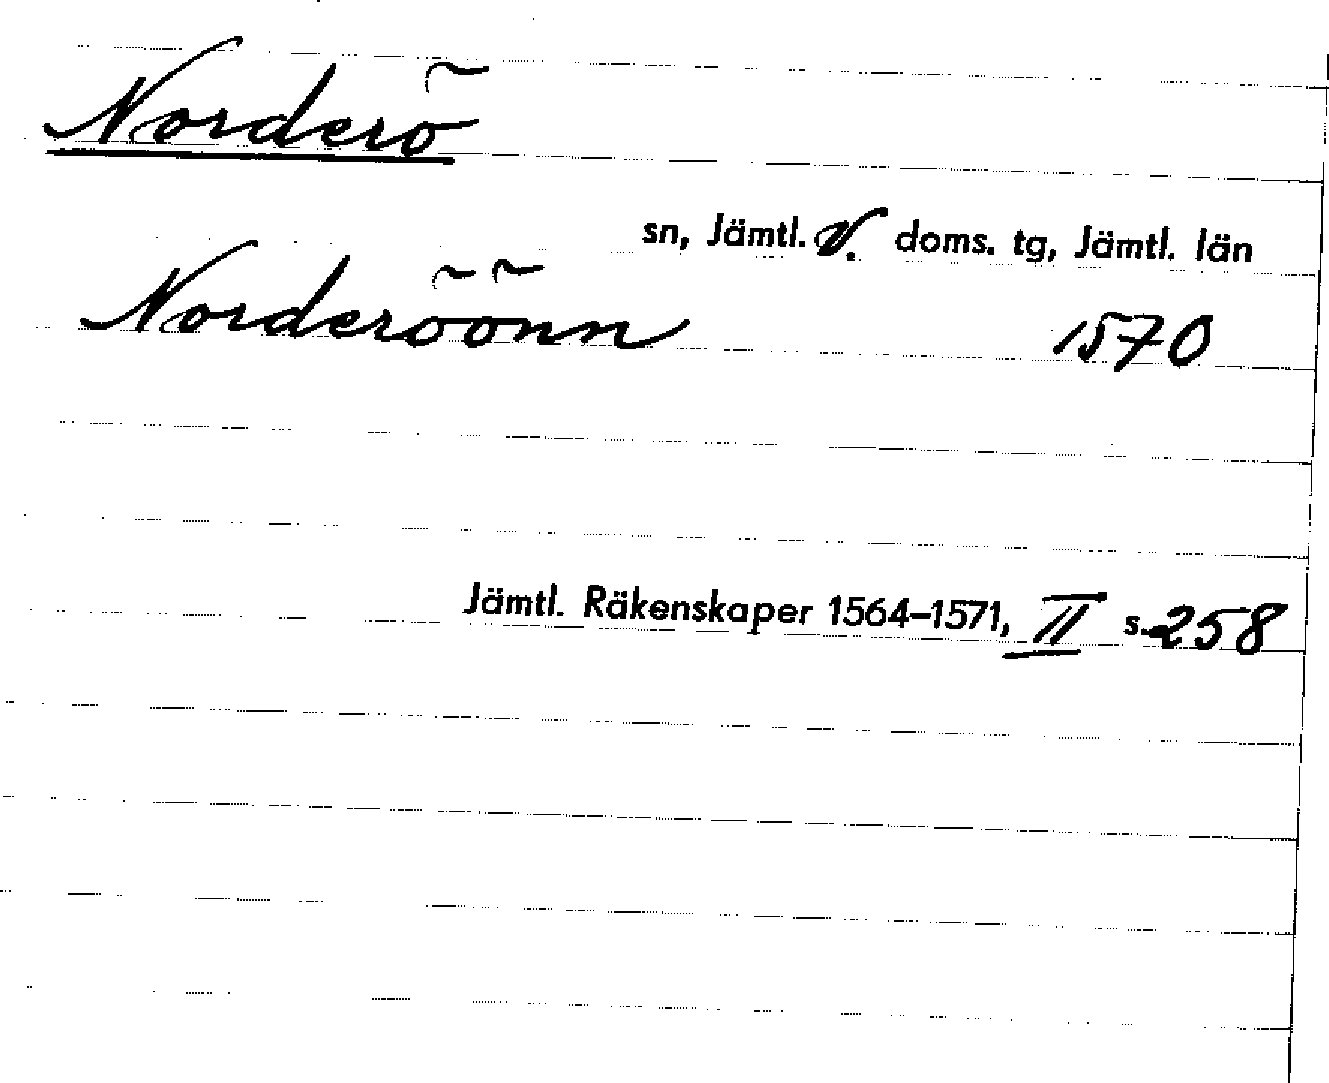 Norderö
sn, Jämtl. V. doms. tg, Jämtl. län
Norderöönn 1570
Jämtl. Räkenskaper 1564–1571, II s. 258